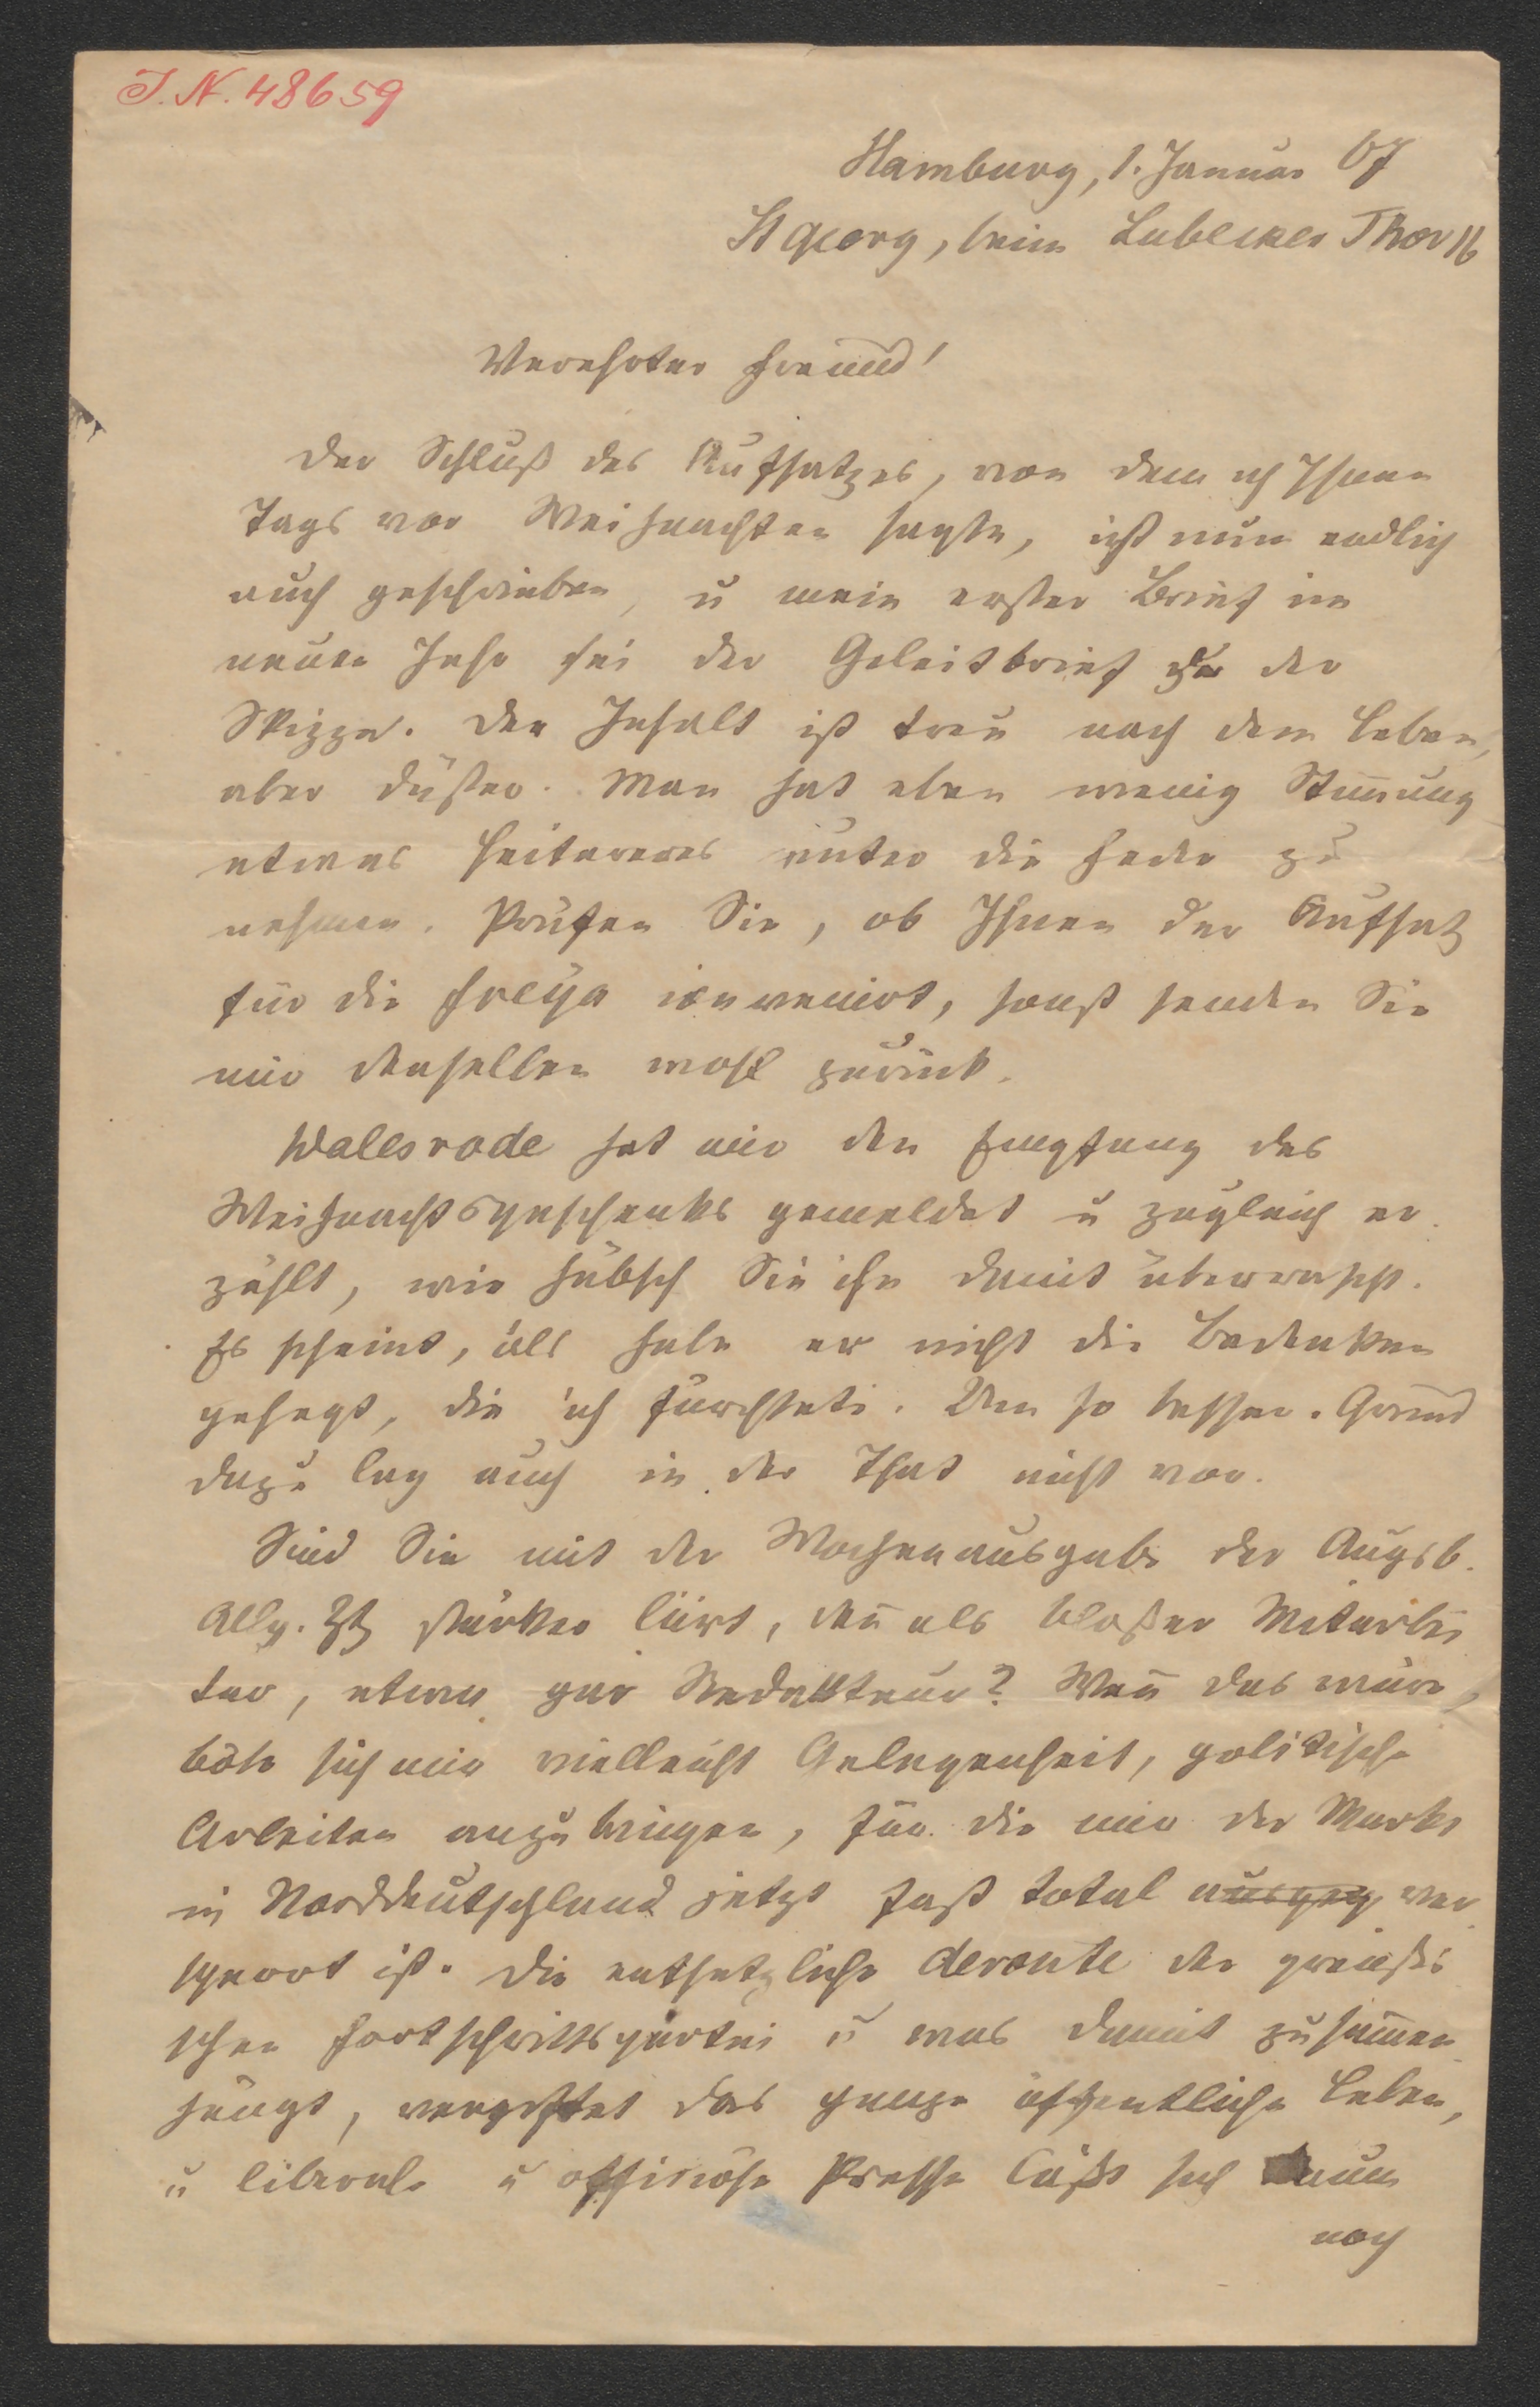 J. N. 48659
Hamburg, 1. Januar 67
St Georg, beim Lübecker Thor 16
Verehrter Freund!
Der Schluß des Aufsatzes, von dem ich Ihnen
Tags vor Weihnachten sagte, ist nun endlich
auch geschrieben, u mein erster Brief im
neuen Jahr sei der Geleitbrief zu der
Skizze. Der Inhalt ist treu nach dem Leben,
aber düster. Man hat eben wenig Stim̄ung
etwas heitereres unter die Feder zu
nehmen. Prüfen Sie, ob Ihnen der Aufsatz
für die Freya convenirt, sonst senden Sie
mir denselben wohl zurück.
Walesrode hat mir den Empfang des
Weihnachtsgeschenks gemeldet u zugleich er
zählt, wie hübsch Sie ihn damit überrascht.
Es scheint, als habe er nicht die Bedenken
gehegt, die ich fürchtete. Um so besser. Grund
dazu lag auch in der That nicht vor.
Sind Sie mit der Wochenausgabe der Augsb.
Allg. Ztg stärker liirt, den̄ als bloßer Mitarbei
ter, etwa gar Redakteur? Wen̄ das wäre,
böte sich mir vielleicht Gelegenheit, politische
Arbeiten anzubringen, für die mir der Markt
in Norddeutschland jetzt fast total ver
sperrt ist. Die entsetzliche deroute der preußi
schen Fortschrittspartei u was damit zusam̄en
hängt, vergiftet das ganze öffentliche Leben,
u liberale u offiziöse Presse läßt sich kaum
noch